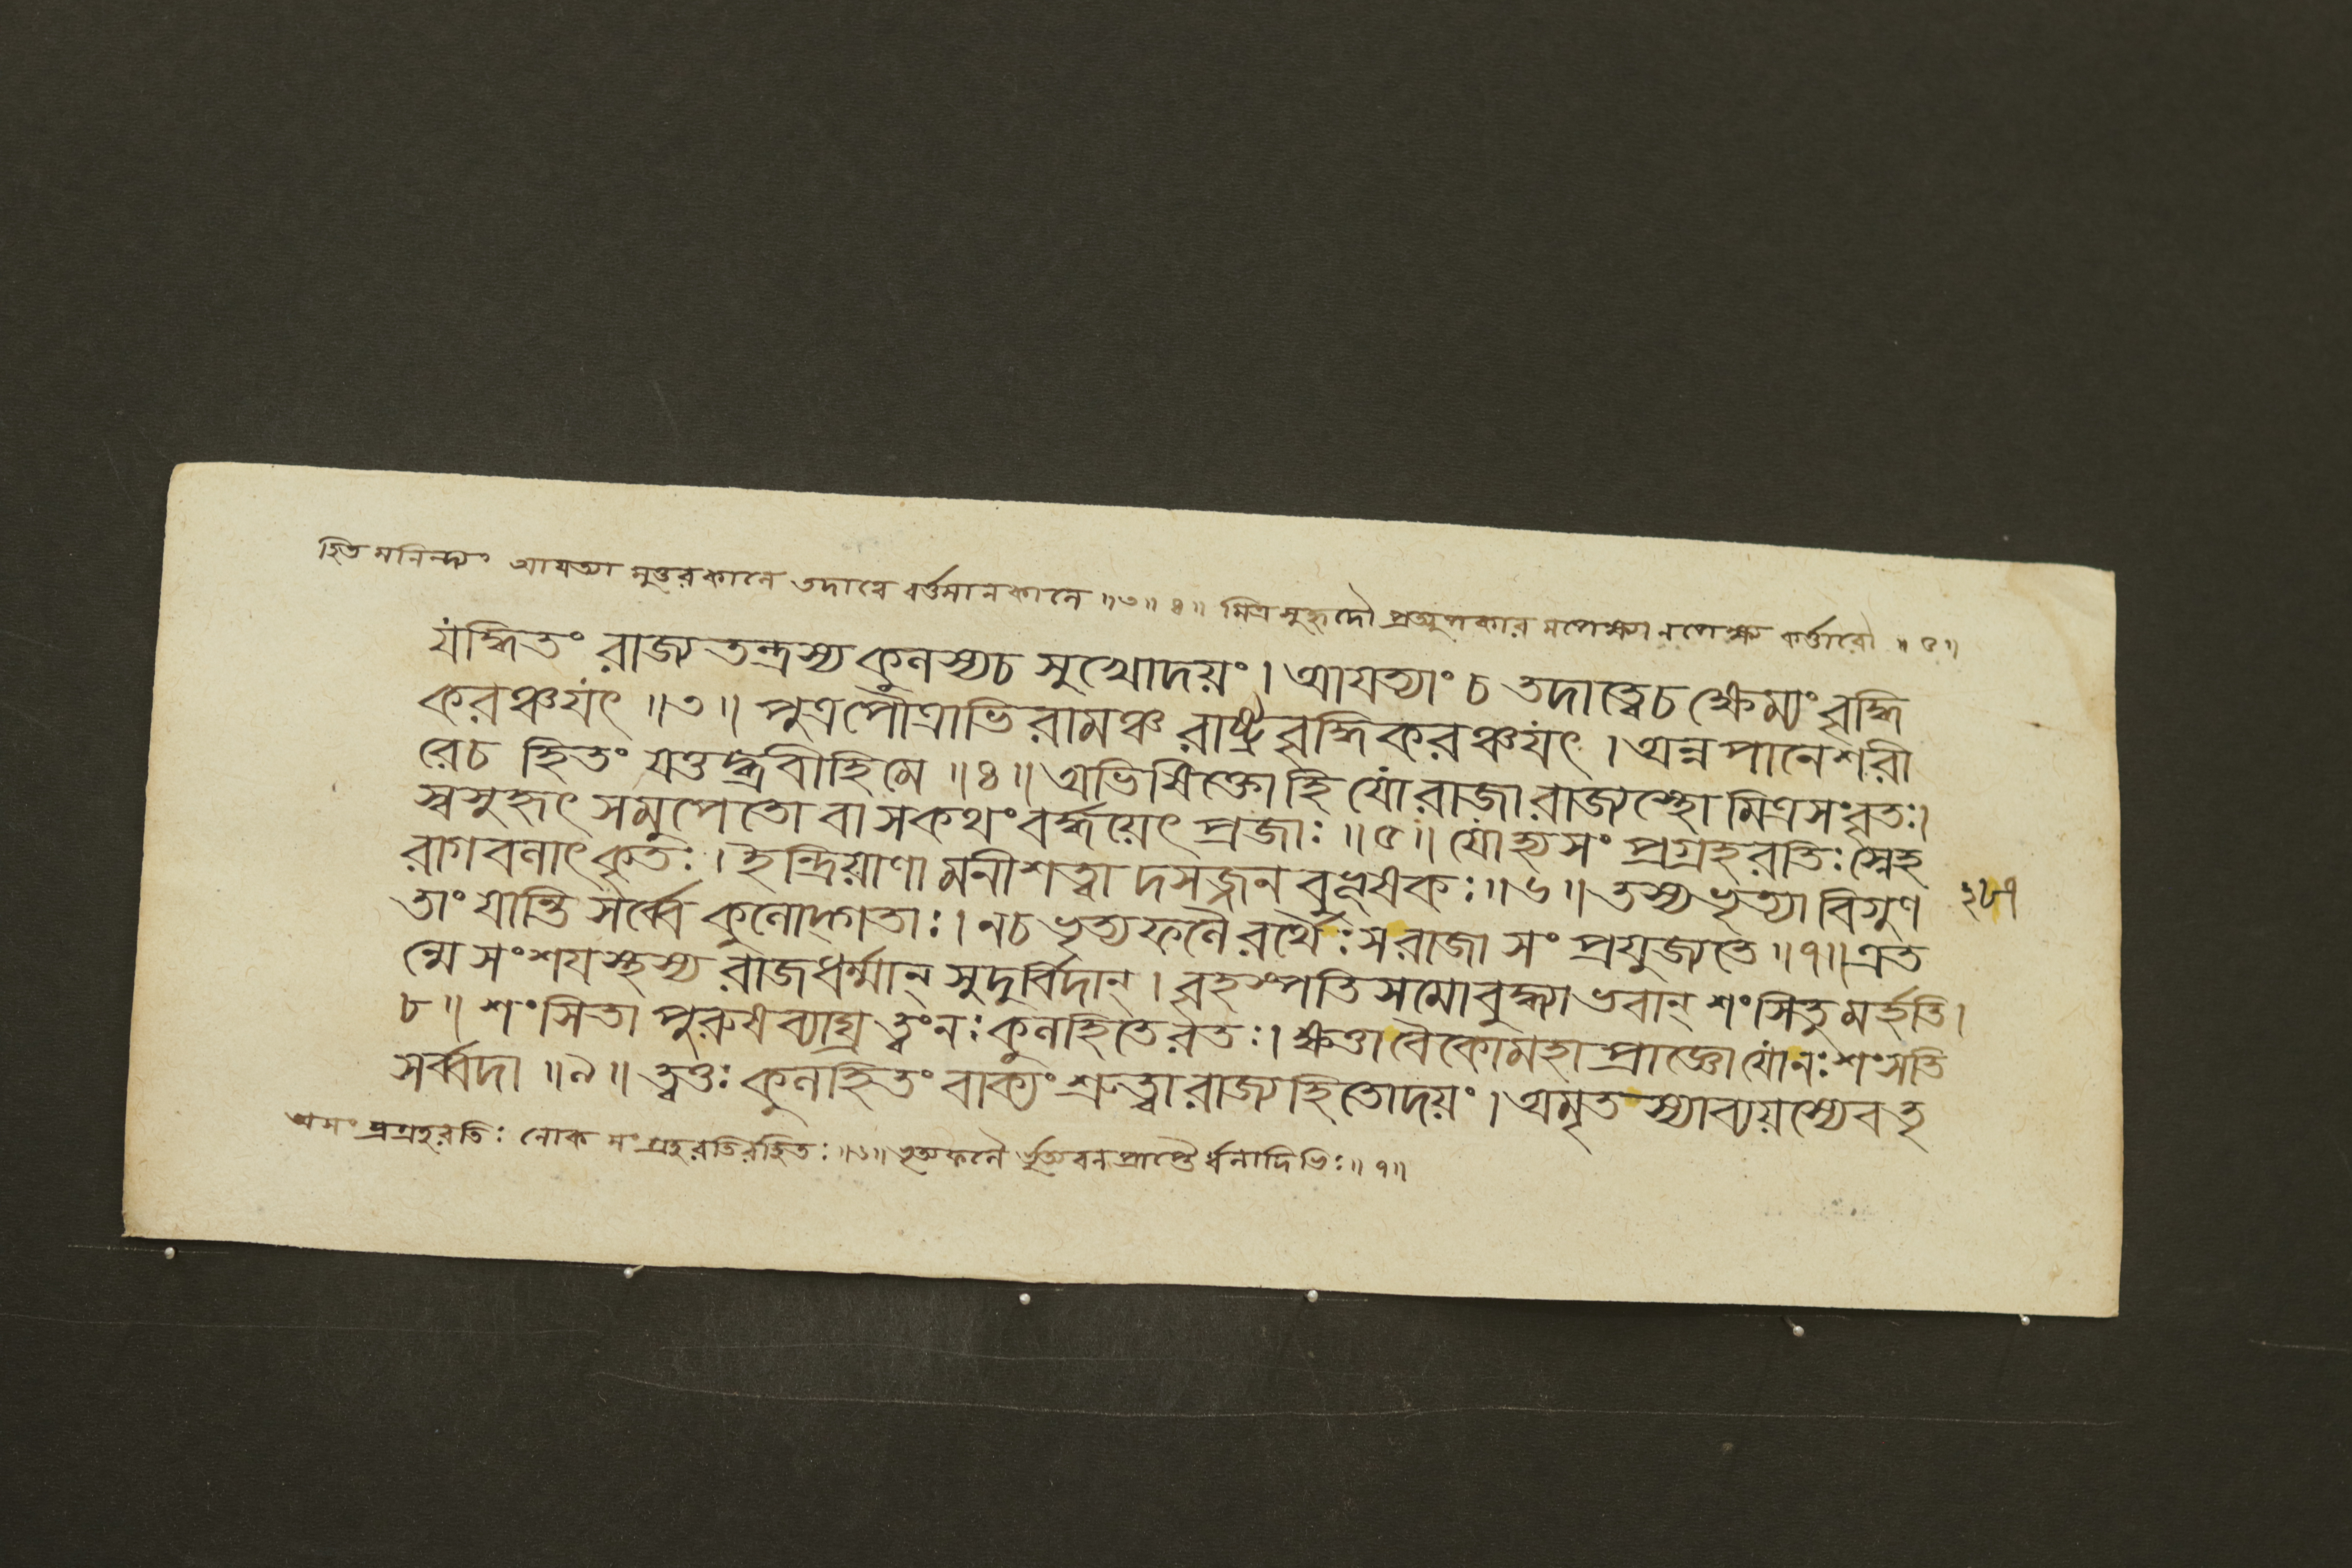 হিত মনিন্দ্যং আয়ত্যা মুত্তরকালে তদাত্বে বর্ত্তমানকালে ॥৩॥৪॥ মিত্রসুহৃদৌ প্রত্যুপকার মপেক্ষ্যানপেক্ষ্য কর্ত্তারৌ ॥৫॥
যদ্ধিতং রাজ্যতন্ত্রস্য কুলস্যচ সুখোদয়ং। আয়ত্যাং চ তদাত্বেচ ক্ষেম্যং বৃদ্ধি
করঞ্চযৎ ॥৩॥ পুত্রপৌত্রাভিরামঞ্চ রাষ্ট্রবৃদ্ধিকরঞ্চযৎ। অন্নপানেশরী
রেচ হিতং যত্তদ্ব্রবীহিমে ॥৪॥ অভিষিক্তোহি যো রাজা রাজ্যস্থো মিত্রসংবৃতঃ।
স্বসুহৃৎ সমুপেতো বা সকথং বর্দ্ধয়েৎ প্রজাঃ ॥৫॥ যোহ্যসং প্রগ্রহরতিঃ স্নেহ
রাগবলাৎকৃতঃ। ইন্দ্রিয়াণা মনীশত্বা দসজ্জন বুভূষকঃ ॥৬॥ তস্যভৃত্যা বিগুণ
তাং যান্তি সর্ব্বে কুলোদ্গতাঃ। নচ ভৃত্যফলৈরর্থৈঃ সরাজা সং প্রযুজ্যতে ॥৭॥ এত
ন্মে সংশয়স্থস্য রাজধর্ম্মান্ সুদুর্বিদান্। বৃহস্পতিসমোবুদ্ধ্যা ভবান্ শংসিতু মর্হতি।
৮॥ শংসিতা পুরুষব্যাঘ্র ত্বংনঃ কুলহিতেরতঃ। ক্ষত্তা বৈকোমহাপ্রাজ্ঞো যোনঃ শংসতি
সর্ব্বদা ॥৯॥ ত্বত্তঃ কুলহিতং বাক্যং শ্রুত্বা রাজ্যহিতোদয়ং। অমৃতস্যাব্যয়স্যেব তৃ
২৮৭
অসং প্রগ্রহরতিঃ লোক সংগ্রহরতিরহিতঃ ॥৬॥ ভৃত্যফলৈ র্ভৃত্যবলপ্রাপ্তৈ র্ধনাদিভিঃ ॥৭॥